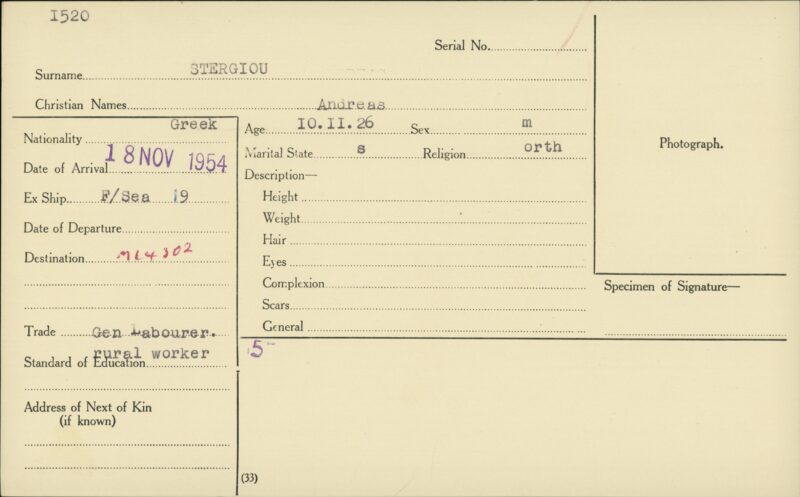 I520
Serial No.
Surname STERGIOU
Christian Names Andreas
Nationality Greek
Date of Arrival 18 NOV 1954
Ex Ship F/Sea 19
Date of Departure
Destination ML4302
Trade Gen Labourer.
rural worker
Standard of Education
Address of Next of Kin
(if known)
Age IO.II.26 Sex m
Marital State s Religion orth
Description—
Height
Weight
Hair
Eyes
Complexion
Scars
General
5-
(33)
Photograph.
Specimen of Signature—